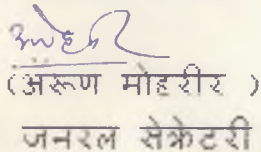 (अरूण मोहरीर )
जनरल सेक्रेटरी